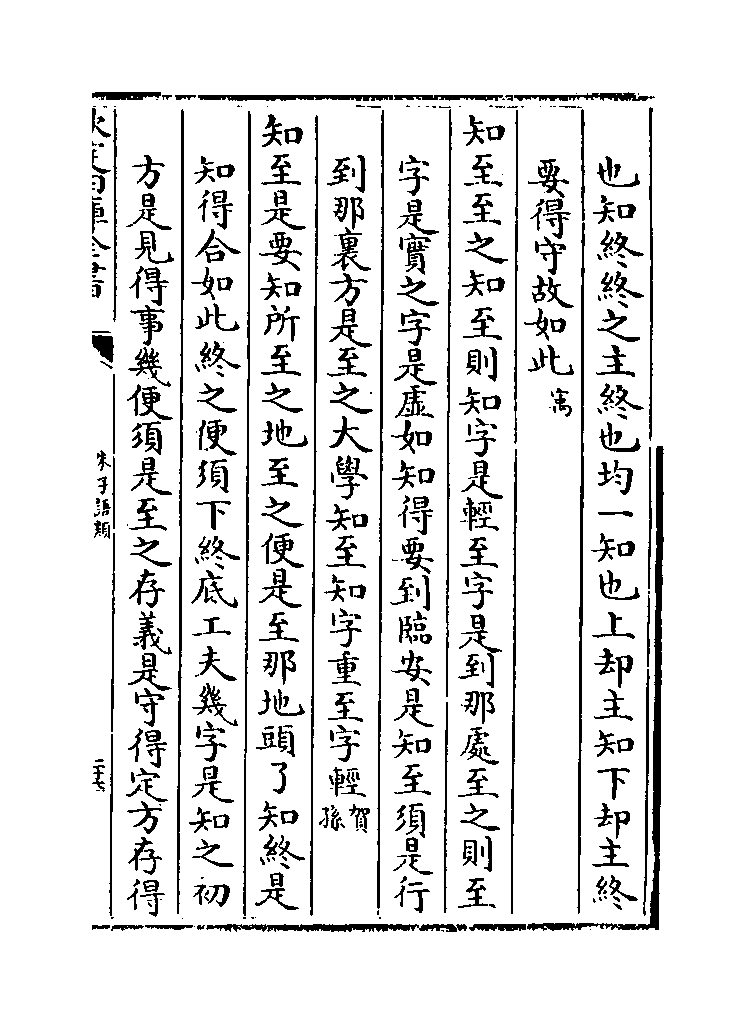 也知終終之主終也均一知也上却主知下却主終
要得守故如此寓
知至至之知至則知字是輕至字是到那處至之則至
字是實之字是虛如知得要到臨安是知至須是行
到那裏方是至之大學知至知字重至字輕賀孫
知至是要知所至之地至之便是至那地頭了知終是
知得合如此終之便須下終底工夫幾字是知之初
方是見得事幾便須是至之存義是守得定方存得
欽定四庫全書
朱子語類